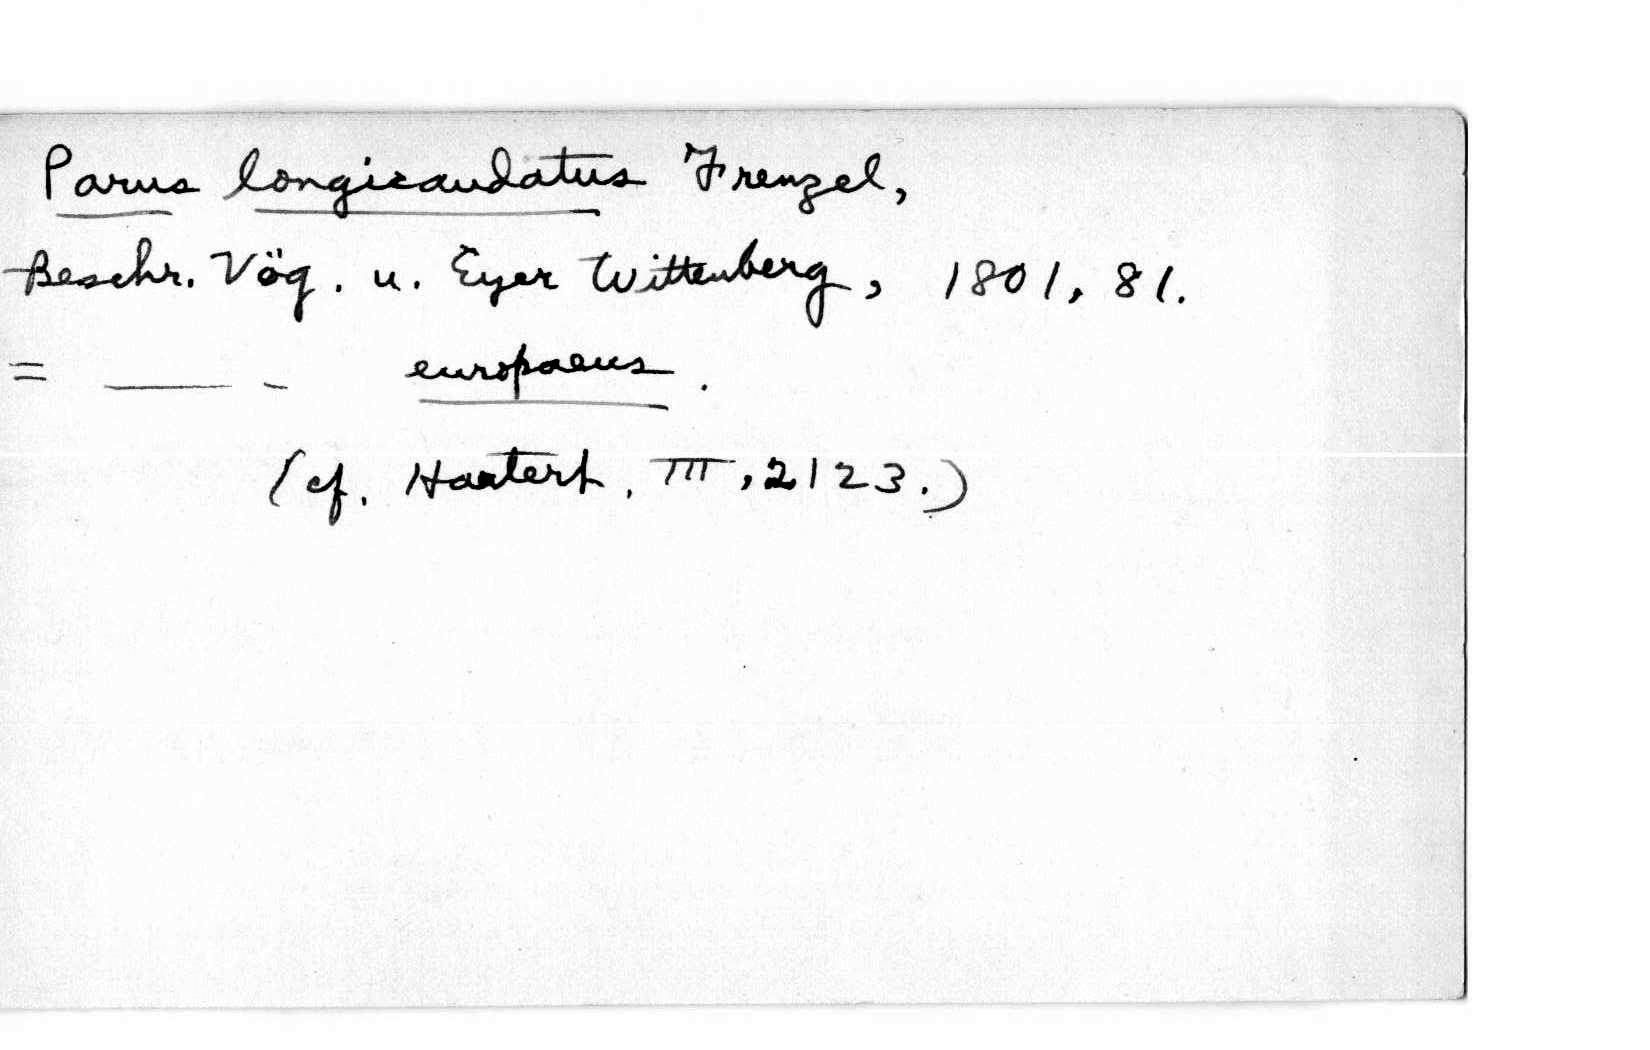 Parus longicaudatus Frenzel,
Beschr. Vög. u. Eyer Wittenberg, 1801, 81.
= ——— - europaeus.
(cf. Hartert, III, 2123.)